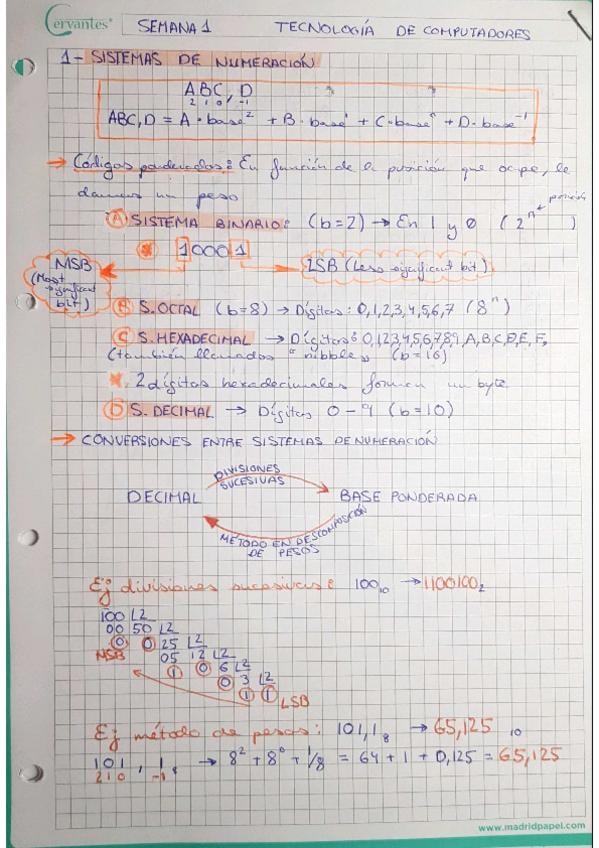 Cervantes®
SEMANA 1 TECNOLOGÍA DE COMPUTADORES
1- SISTEMAS DE NUMERACIÓN
ABC, D
2 1 0, -1
ABC,D = A · base² + B · base¹ + C · base⁰ + D · base⁻¹
→ Códigos ponderados: En función de la posición que ocupe, le
damos un peso
posición
A SISTEMA BINARIO: (b=2) → En 1 y 0 (2ⁿ )
* 10001
MSB
(Most
significant
bit)
LSB (Less significant bit)
B S. OCTAL (b=8) → Dígitos: 0,1,2,3,4,5,6,7 (8ⁿ)
C S. HEXADECIMAL → Dígitos: 0,1,2,3,4,5,6,7,8,9,A,B,C,D,E,F,
(también llamados "nibbles" (b=16)
* 2 dígitos hexadecimales forman un byte
D S. DECIMAL → Dígitos 0-9 (b=10)
→ CONVERSIONES ENTRE SISTEMAS DE NUMERACIÓN
DIVISIONES
SUCESIVAS
DECIMAL BASE PONDERADA
MÉTODO EN DESCOMPOSICIÓN
DE PESOS
Ej divisiones sucesivas: 100₁₀ → 1100100₂
100 L2
00 50 L2
0 0 25 L2
MSB 05 12 L2
1 0 6 L2
0 3 L2
1 1 LSB
Ej método de pesos: 101,1₈ → 65,125 ₁₀
101, 1₈ → 8² + 8⁰ + 1/8 = 64 + 1 + 0,125 = 65,125
2 1 0 -1
www.madridpapel.com